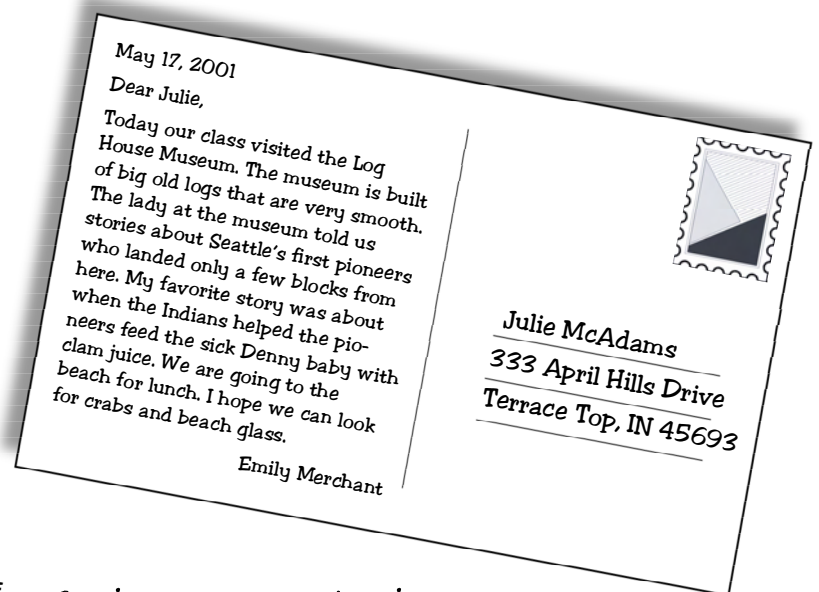 May 17, 2001
Dear Julie,
Today our class visited the Log
House Museum. The museum is built
of big old logs that are very smooth.
The lady at the museum told us
stories about Seattle's first pioneers
who landed only a few blocks from
here. My favorite story was about
when the Indians helped the pio-
neers feed the sick Denny baby with
clam juice. We are going to the
beach for lunch. I hope we can look
for crabs and beach glass.
Emily Merchant
Julie McAdams
333 April Hills Drive
Terrace Top, IN 45693